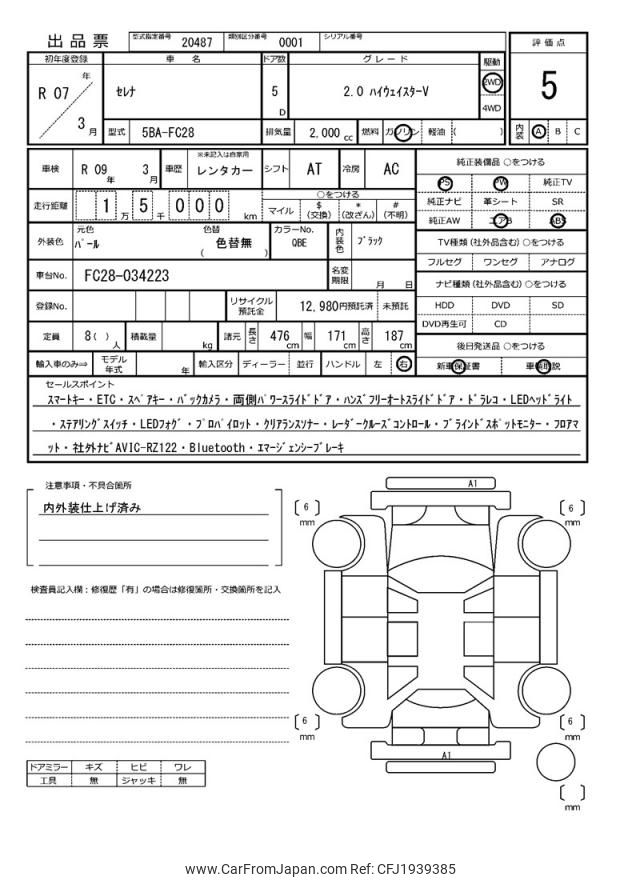 出品票 型式指定番号 20487 類別区分番号 0001 シリアル番号
評価点
5
内装 A B C
初年度登録 車名 ドア数 グレード 駆動
R 07 年 3 月
セレナ 5 D 2.0 ハイウェイスターV 2WD 4WD
型式 5BA-FC28 排気量 2,000 cc 燃料 ガソリン 軽油 ( )
車検 R 09 年 3 月 車歴 ※未記入は自家用 レンタカー シフト AT 冷房 AC
走行距離 1 万 5 千 0 0 0 km
○をつける
マイル $ (交換) * (改ざん) # (不明)
外装色 元色 パール 色替 ( 色替無 ) カラーNo. QBE 内装色 ブラック
車台No. FC28-034223 名変期限 月 日
登録No. リサイクル預託金 12,980円預託済 未預託
定員 8( ) 人 積載量 kg 諸元 長さ 476 cm 幅 171 cm 高さ 187 cm
輸入車のみ⇒ モデル年式 年 輸入区分 ディーラー 並行 ハンドル 左 右
純正装備品 ○をつける
PS PW 純正TV
純正ナビ 革シート SR
純正AW エアB ABS
TV種類(社外品含む)○をつける
フルセグ ワンセグ アナログ
ナビ種類(社外品含む)○をつける
HDD DVD SD
DVD再生可 CD
後日発送品 ○をつける
新車保証書 車輌取説
セールスポイント
スマートキー・ETC・スペアキー・バックカメラ・両側パワースライドドア・ハンズフリーオートスライドドア・ドラレコ・LEDヘッドライト
・ステアリングスイッチ・LEDフォグ・プロパイロット・クリアランスソナー・レーダークルーズコントロール・ブラインドスポットモニター・フロアマ
ット・社外ナビAVIC-RZ122・Bluetooth・エマージェンシーブレーキ
注意事項・不具合箇所
内外装仕上げ済み
検査員記入欄:修復歴「有」の場合は修復箇所・交換箇所を記入
A1
6 mm
6 mm
6 mm
6 mm
A1
mm
ドアミラー キズ ヒビ ワレ
工具 無 ジャッキ 無
www.CarFromJapan.com Ref: CFJ1939385